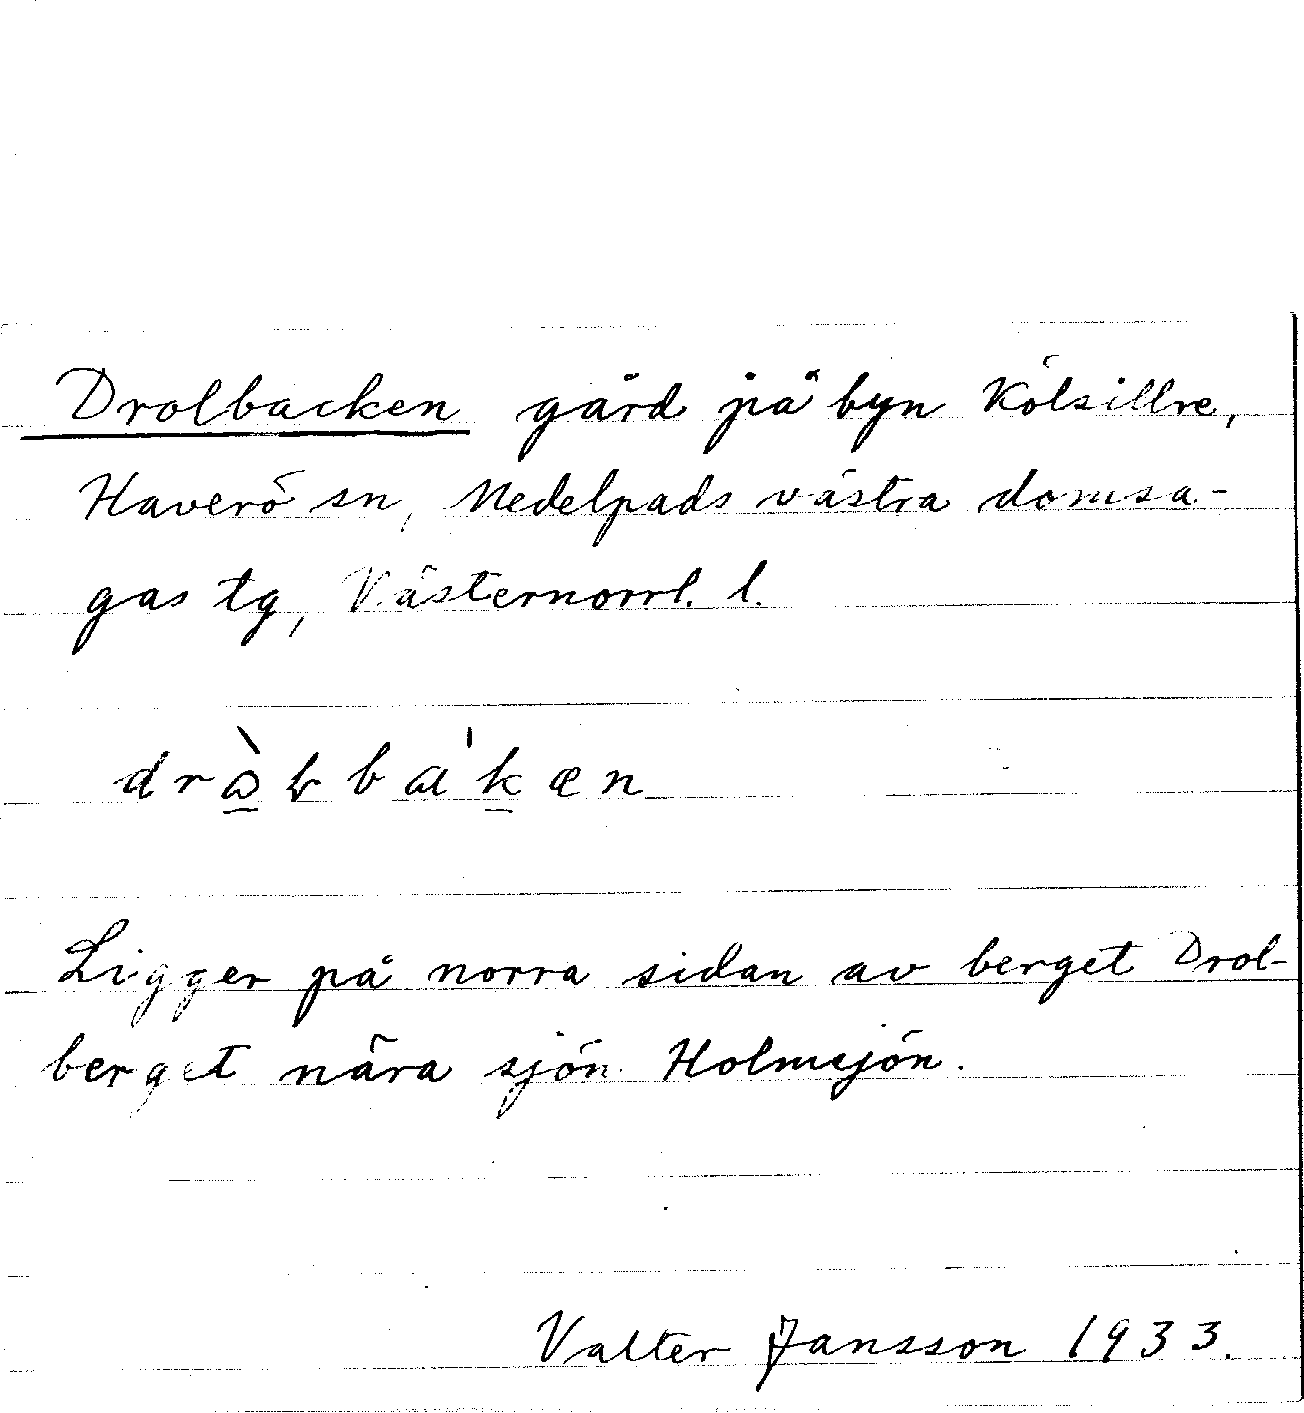 Drolbacken gård på byn Kölsillre,
Haverö sn, Medelpads västra domsa-
gas tg, Västernorrl. l.
Ligger på norra sidan av berget Drol-
berget nära sjön Holmsjön.
Valter Jansson 1933.